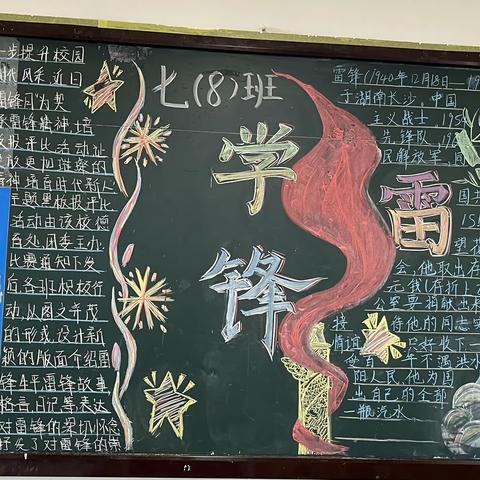 一步提升校园
七(8)班
学
雷
锋
雷锋(1940年12月18日
于湖南长沙,中国
主义战士,195
先锋队,
民解放军,同
会,他取出存
元钱(存折)
公室要捐献出
接待他的同志实
情谊 只好收下一
年不遇洪水
阳人民,他为国
出自己的全部
一瓶汽水
雷锋精神,培
板报评比活动
精神,培育时代新人
主题黑板报评比
活动由该校德
育处、团委主办,
比赛通知下发
后,各班积极行
动,以图文并茂
的形式,设计新
颖的版面介绍雷
锋生平、雷锋故事、
格言、日记等,表达
对雷锋的深切怀念